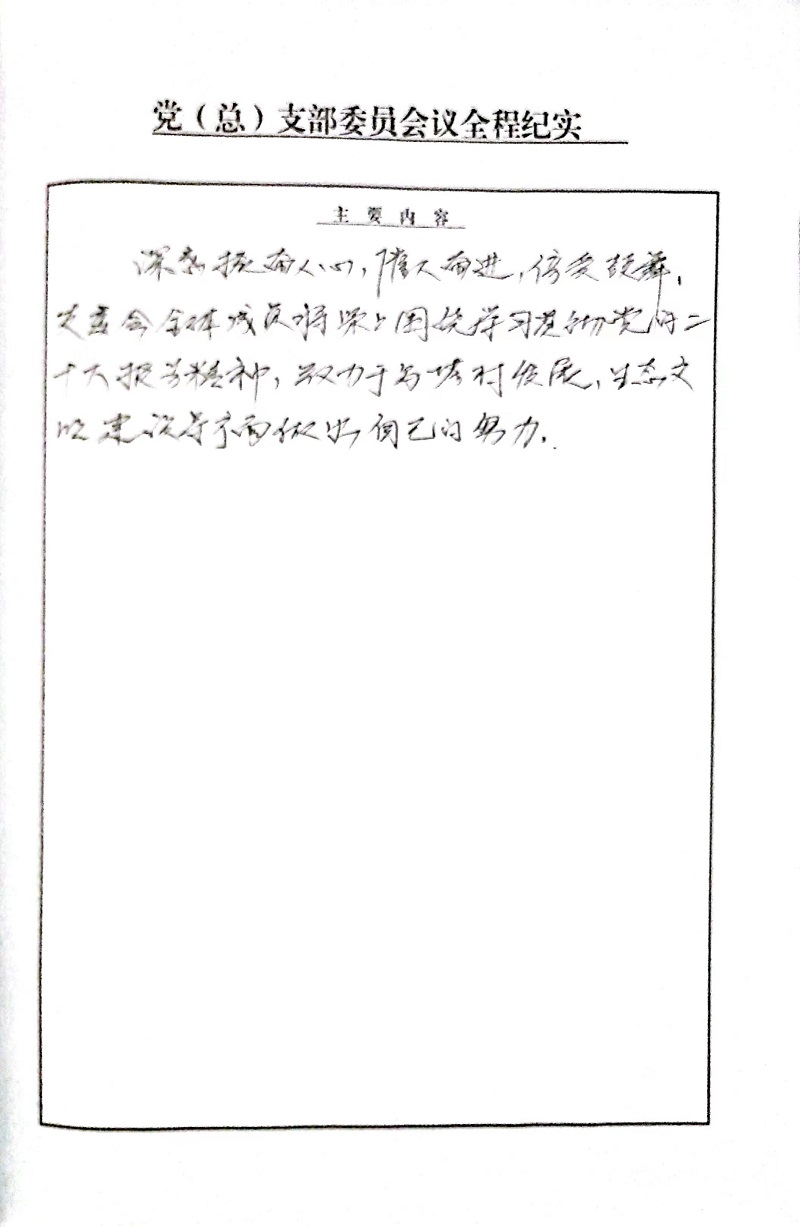 党（总）支部委员会议全程纪实
主要内容
深感振奋人心，催人奋进，倍受鼓舞，
支委会全体成员将紧紧围绕学习贯彻党的二
十大报告精神，致力于乡村发展，生态文
明建设等方面做出自己的努力．